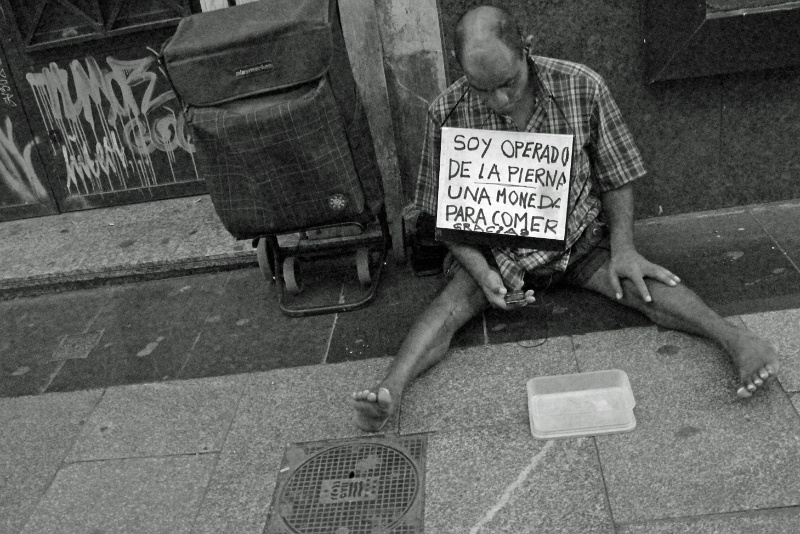 SOY OPERADO
DE LA PIERNA
UNA MONEDA
PARA COMER
GRACIAS
playmarket